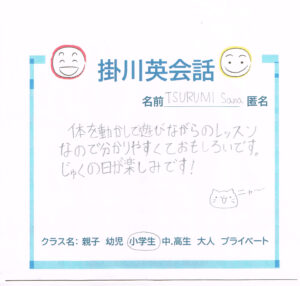 掛川英会話
名前 TSURUMI Sana 匿名
体を動かして遊びながらのレッスン
なので分かりやすくておもしろいです。
じゅくの日が楽しみです!
ニャー
クラス名: 親子 幼児 小学生 中,高生 大人 プライベート